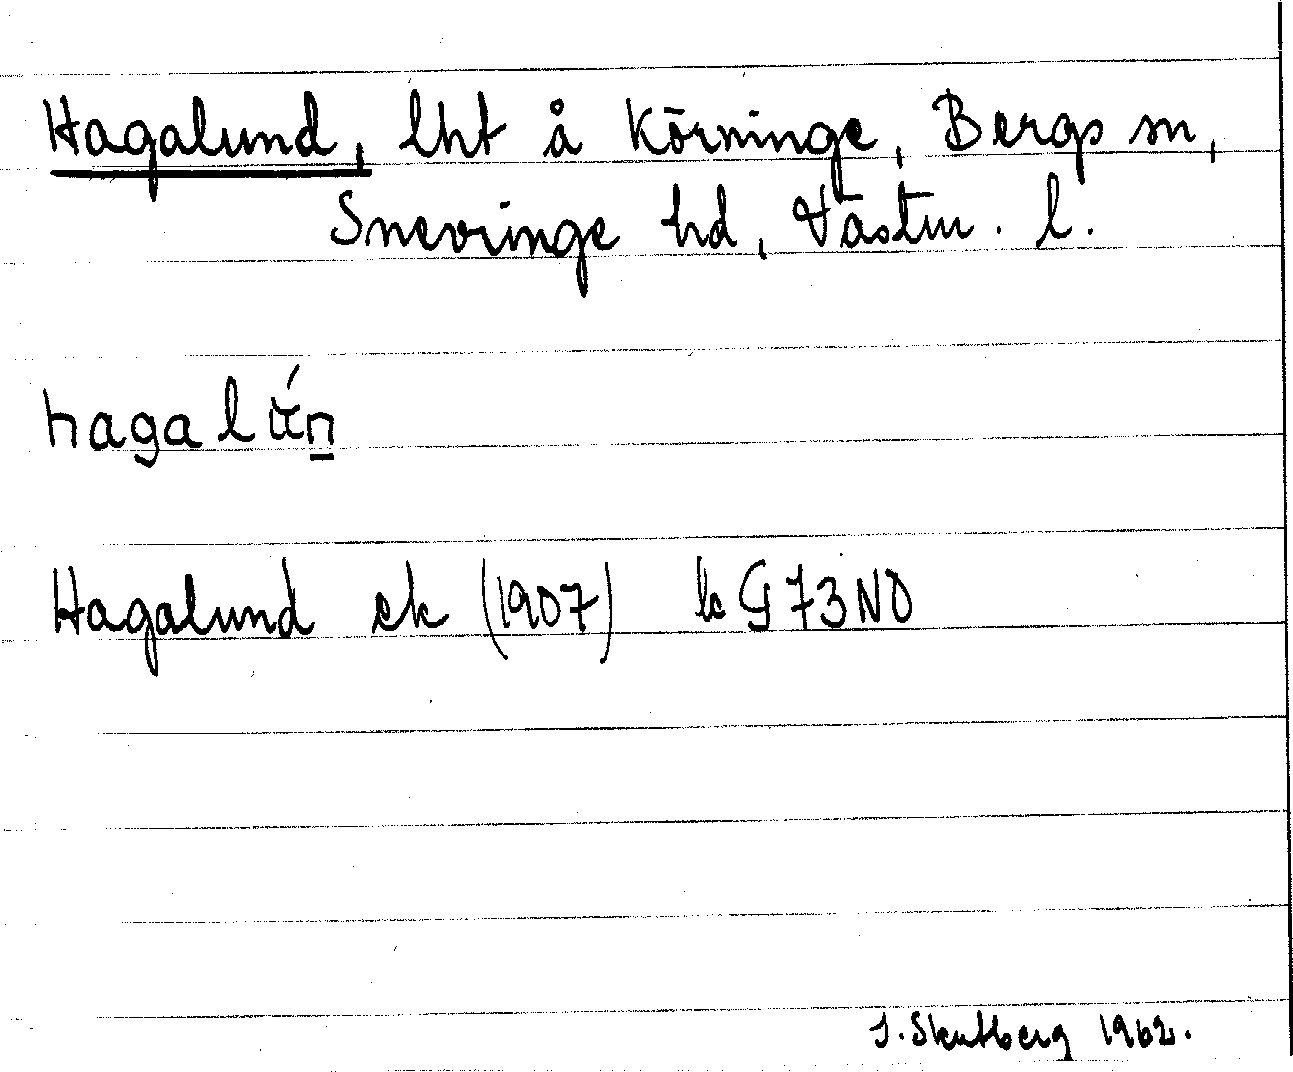 Hagalund, lht å Körninge, Bergs sn,
Snevringe hd, Västm. l.
hagalún̲
Hagalund ek (1907) bl G 73 NO
J. Skutberg 1962.